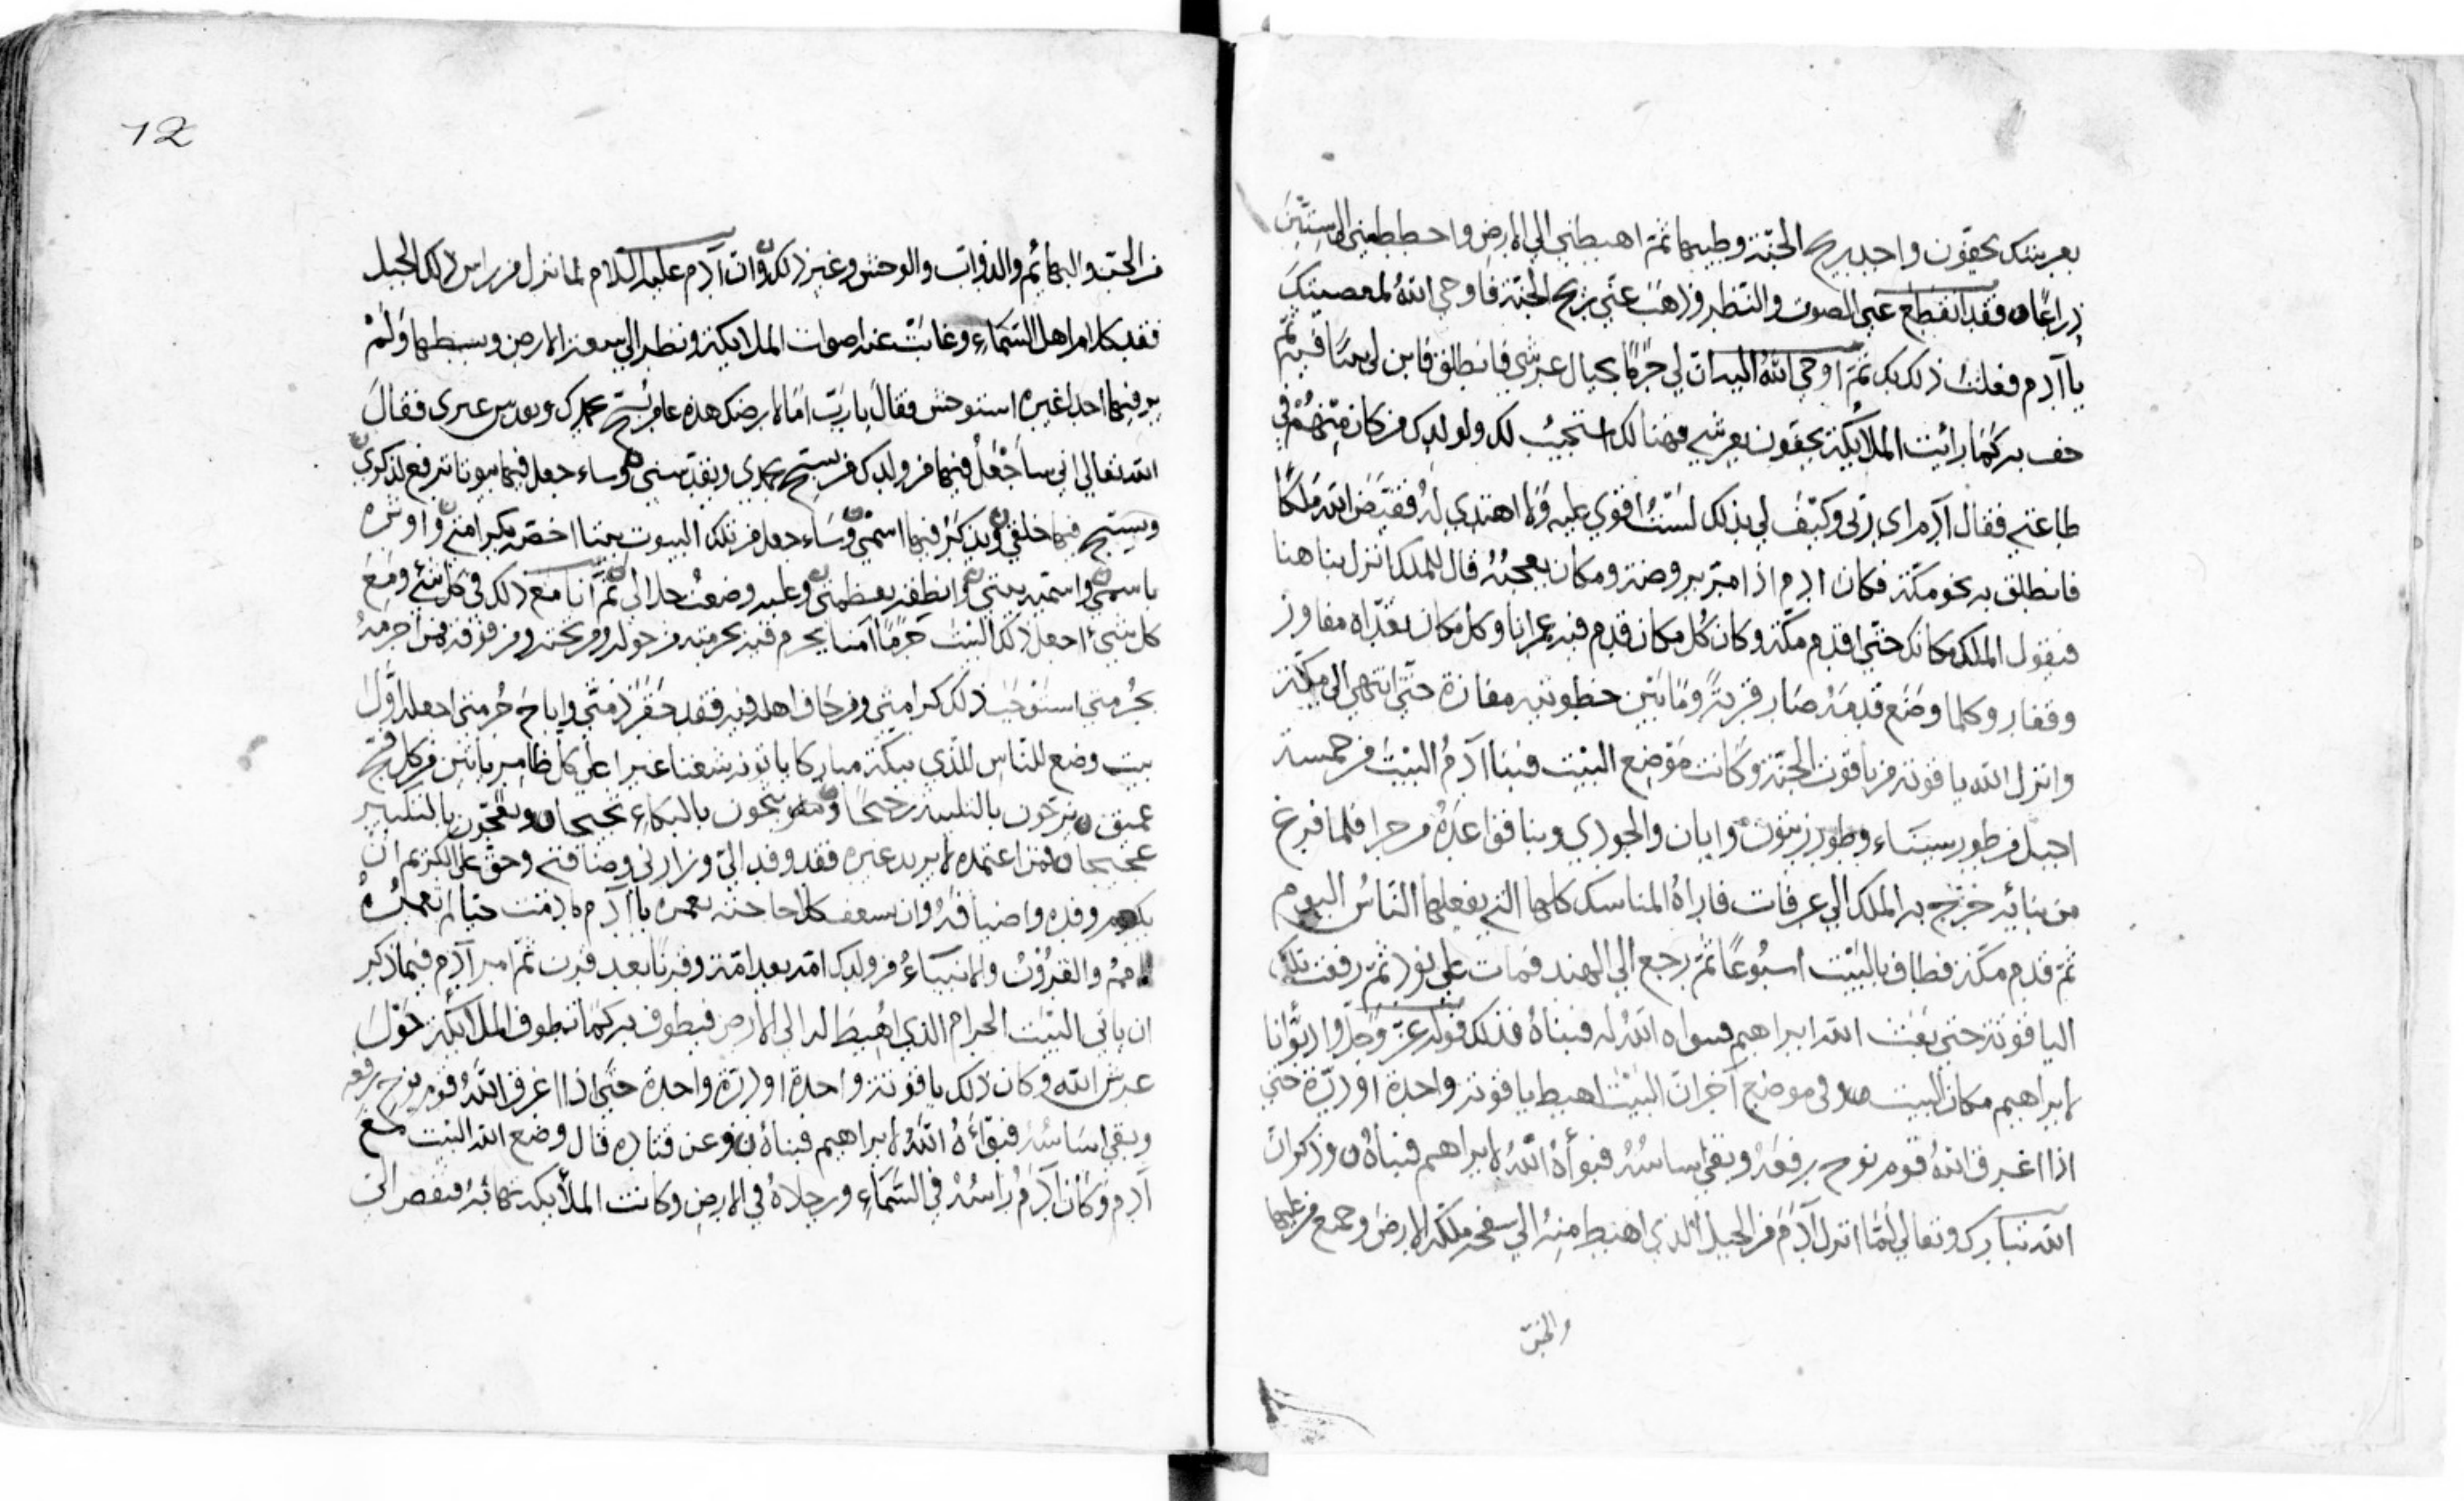 بعرشك يحفون واجد ريح الجنة وطيبها ثم اهبطني الى الارض واحططتني الى ستين
ذراعا فقد انقطع عني الصوت والنظر وذهب عني ريح الجنة فاوحى الله لمعصيتك
يا آدم فعلت ذلك بك ثم اوحى الله اليه ان لي حرما بحيال عرشي فانطلق فابن لي بيتا فيه ثم
حف به كما رائت الملائكة يحفون بعرشي فهنالك استجيب لك ولولدك من كان منهم في
طاعتي فقال آدم اى رب وكيف لي بذلك لست اقوى عليه ولا اهتدي له فقيض الله ملكا
فانطلق به نحو مكة فكان ادم اذا مر بروضة ومكان يعجبه قال للملك انزل بنا هنا
فيقول الملك مكانك حتى اقدم مكة وكان كل مكان قدم فيه عمرانا وكل مكان تعداه مفاوز
وقفار وكلما وضع قدمه صار قرية وما بين خطوتيه مفازة حتى انتهى الى مكة
وانزل الله ياقوتة من ياقوت الجنة وكانت موضع البيت فبنا آدم البيت من خمسة
اجبل من طور سيناء وطور زيتون وابان والجودي وبنا قواعده من حرا فلما فرغ
من بنائه خرج به الملك الى عرفات فاراه المناسك كلها التي يفعلها الناس اليوم
ثم قدم مكة فطاف بالبيت اسبوعا ثم رجع الى الهند فمات على نود ثم رفعت تلك
الياقوتة حتى بعث الله ابراهيم فبواه الله له فبناه فذلك قوله عز وجل واذ بوانا
لابراهيم مكان البيت وفي موضع آخر ان البيت اهبط ياقوتة واحدة او درة حتى
اذا اغرق الله قوم نوح رفعه وبقي اساسه فبوأه الله لابراهيم فبناه وذكر ان
الله تبارك وتعالى لما انزل آدم من الجبل الذي اهبط منه الى سفحه ملكه الارض وجمع من عليها
من الجن والبهائم والدواب والوحش وغير ذلك وان آدم عليه السلام لما نزل من راس ذلك الجبل
فقد كلام اهل السماء وغابت عنه اصوات الملائكة ونظر الى سعة الارض وبسطها ولم
ير فيها احدا غيره استوحش فقال يا رب اما لارضك هذه عامر يسبح بحمدك ويقدس غيرى فقال
الله تعالى اني ساجعل فيها من ولدك من يسبح بحمدي ويقدسني وساءجعل فيها بيوتا ترفع لذكري
ويسبح فيها خلقي ويذكر فيها اسمي وساءجعل من تلك البيوت بيتا اخصه بكرامتي واوثره
باسمي واسميه بيتي وانطقه بعظمتي وعليه وضعت جلالي ثم انا مع ذلك في كل شيء ومع
كل شيء اجعل ذلك البيت حرما آمنا يحرم فيه بحرمته من حوله ومن تحته ومن فوقه فمن حرمه
بحرمتي استوجب ذلك كرامتي ومن اخاف اهله فيه فقد حقر ذمتي واباح حرمتي اجعله اول
بيت وضع للناس للذي ببكة مباركا ياتونه شعثا غبرا على كل ضامر ياتين من كل فج
عميق يزجون بالتلبية زجيجا ويثجون بالبكاء ثجيجا ويعجون بالتكبير
عجيجا فمن اعتمده لا يريد غيره فقد وفد الي وزارني وضافني وحق على الكريم ان
يكرم وفده واضيافه وان يسعف كلا حاجته تعمره يا آدم ما دمت حيا ثم تعمره
الامم والقرون والانبياء من ولدك امة بعد امة وقرنا بعد قرن ثم امر آدم فيما ذكر
ان ياتي البيت الحرام الذي اهبط له الى الارض فيطوف به كما تطوف الملائكة حول
عرش الله وكان ذلك ياقوتة واحدة او درة واحدة حتى اذا اغرق الله قوم نوح رفعه
وبقي اساسه فبوأه الله لابراهيم فبناه وعن قتاده قال وضع الله البيت مع
آدم وكان آدم راسه في السماء ورجلاه في الارض وكانت الملائكة تهابه فنقص الى